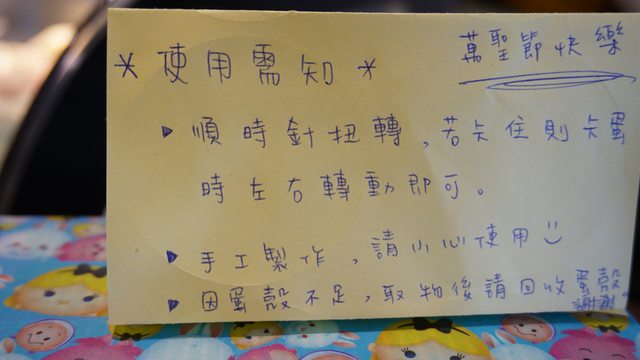 萬聖節快樂
*使用需知*
▶ 順時針扭轉,若卡住則卡蛋
時左右轉動即可。
▶ 手工製作,請小心使用☺
▶ 因蛋殼不足,取物後請回收蛋殼
謝謝。